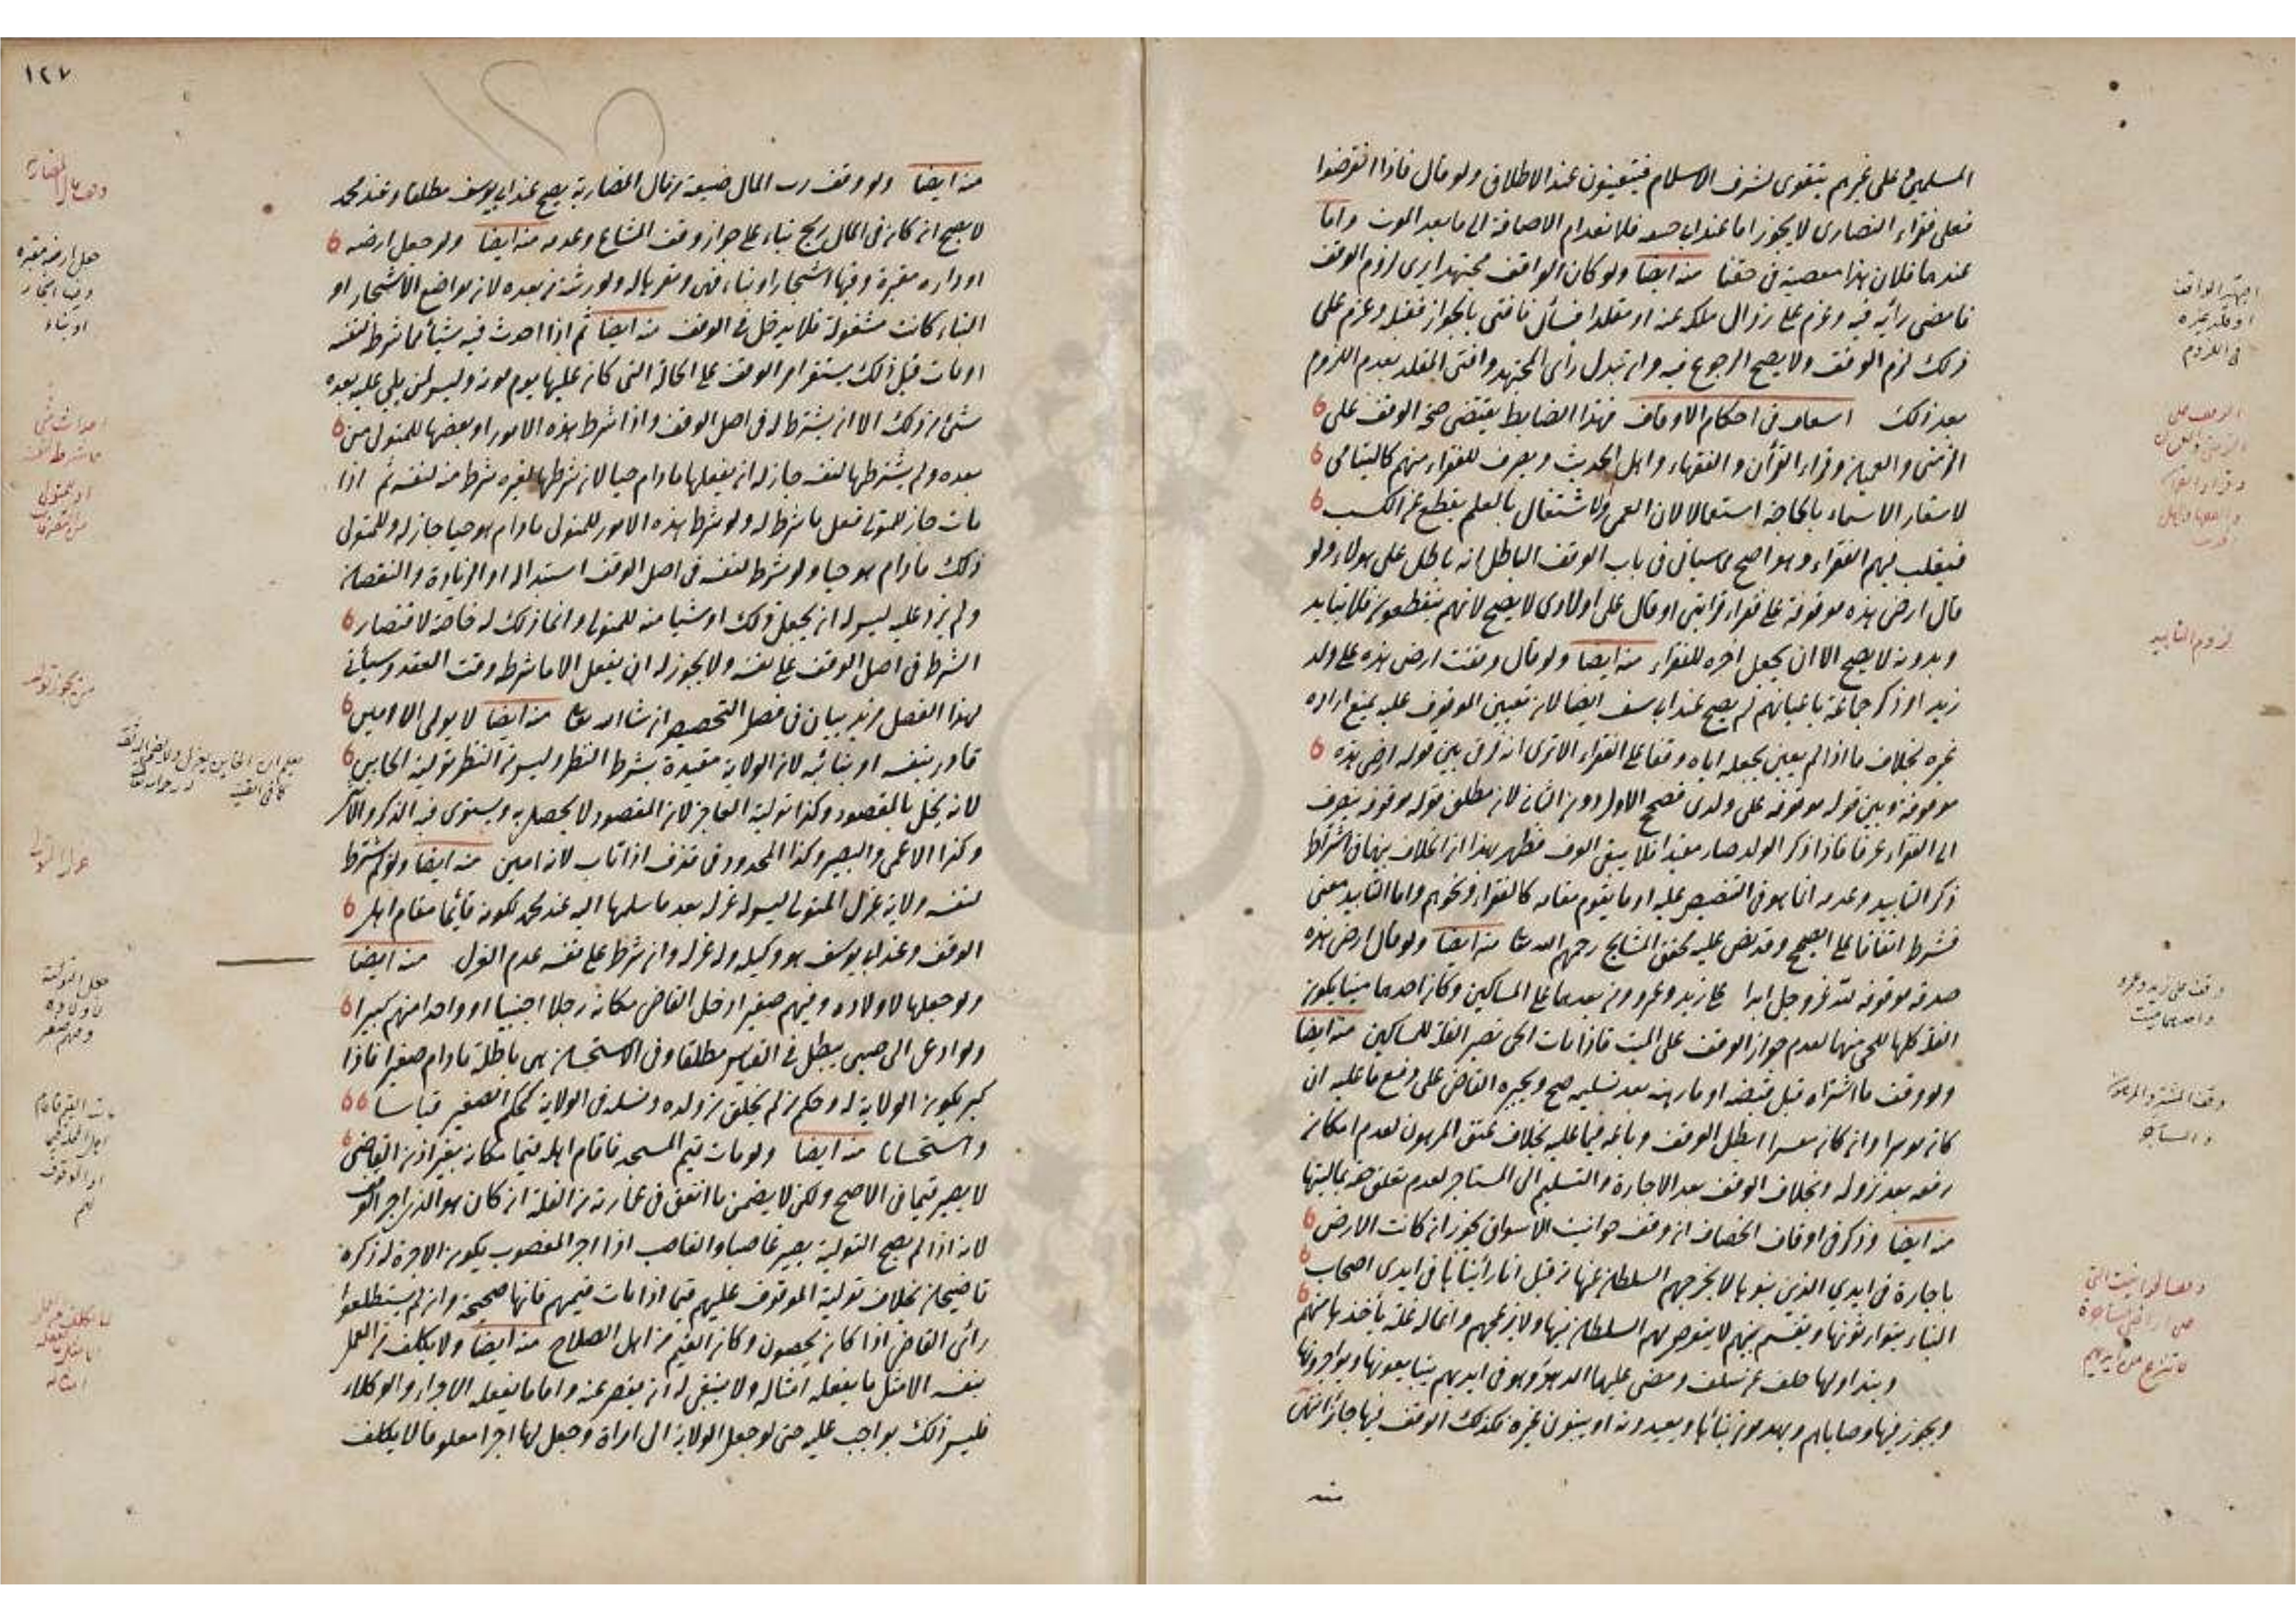 المسلمين على غيرهم يتقوى لشرف الاسلام فيتعينون عند الاطلاق ولو قال فاذا انقرضوا
فعلى فقراء النصارى لا يجوز اما عند ابى حنيفه فلانعدام الاضافة الى ما بعد الموت واما
عندهما فلان هذا معصية فى حقنا منه ايضا ولو كان الواقف مجتهدا يرى لزوم الوقف
فامضى رأيه فيه وعزم على زوال ملكه عنه او مقلدا فسأل فافتى بالجواز فقبله وعزم على
ذلك لزم الوقف ولا يصح الرجوع فيه وان تبدل رأى المجتهد وافتى المقلد بعدم اللزوم
بعد ذلك اسعاف فى احكام الاوقاف فهذا الضابط يقتضى صحة الوقف على
الزمنى والعميان وقراء القرأن والفقهاء واهل الحديث ويصرف للفقراء منهم كاليتامى
لاشعار الاسماء بالحاجة استعمالا لان العمى والاشتغال بالعلم يقطع عن الكسب
فيغلب فيهم الفقراء وهو اصح مما سياتى فى باب الوقف الباطل انه باطل على هولاء ولو
قال ارضى هذه موقوفة على فقراء قرابتى او قال على اولادى لا يصح لانهم ينقطعون فلا يتابد
وبدونه لا يصح الا ان يجعل اخره للفقراء منه ايضا ولو قال وقفت ارضى هذه على ولد
زيد او ذكر جماعة باعيانهم لم يصح عند ابى يوسف ايضا لان تعيين الموقوف عليه يمنع اراده
غيره بخلاف ما اذا لم يعين بجعله اياه وقفا على الفقراء الا ترى انه فرق بين قوله ارضى هذه
موقوفة وبين قوله موقوفه على ولدى فصح الاول دون الثانى لان مطلق قوله موقوفه يصرف
الى الفقراء عرفا فاذا ذكر الولد صار مقيدا فلا يبقى العرف فظهر بهذا ان الخلاف بينهما فى اشتراط
ذكر التابيد وعدمه انما هو فى التنصيص عليه او ما يقوم مقامه كالفقراء ونحوهم واما التابيد معنى
فشرط اتفاقا على الصحيح وقد نص عليه محقق المشايخ رحمهم الله تعالى منه ايضا ولو قال ارضى هذه
صدقه موقوفه لله عز وجل ابدا على زيد وعمرو ومن بعدهما على المساكين وكان احدهما ميتا يكون
الغلة كلها للحى منهما لعدم جواز الوقف على الميت فاذا مات الحى تصير الغلة للمساكين منه ايضا
ولو وقف ما اشتراه قبل قبضه او ما رهنه بعد تسليمه صح ويجبره القاضى على دفع ما عليه ان
كان موسرا وان كان معسرا ابطل الوقف وباعه فيما عليه بخلاف عتق المرهون لعدم امكان
رفعه بعد نزوله وبخلاف الوقف بعد الاجارة والتسليم الى المستاجر لعدم تعلق حقه بماليتها
منه ايضا وذكر فى اوقاف الخصاف ان وقف حوانيت الاسواق يجوز ان كانت الارض
باجارة فى ايدي الذين بنوها لا يخرجهم السلطان عنها من قبل انا رأيناها فى ايدى اصحاب
البناء يتوارثونها ويقسم بينهم لا يتعرض لهم السلطان فيها ولا يزعجهم وانما له غلة يأخذها منهم
ويتداولها خلف عن سلف ومضى عليها الدهور وهو فى ايديهم يتبايعونها ويواجرونها
ويجوز فيها وصاياهم ويهدمون بناءها ويعيدونه او يبنون غيره فكذلك الوقف فيها جائز انتهى
منه
اجتهد الواقف
او قلد غيره
فى اللزوم
لزوم التابيد
وقف على زيد وعمرو
واحدهما ميت
وقف المشترى والمرهون
والمستأجر
١٢٧
منه ايضا ولو وقف رب المال ضيعة من مال المضاربة يصح عند ابى يوسف مطلقا وعند محمد
لا يصح ان كان فى المال ربح بناء على جواز وقف المشاع وعدمه منه ايضا ولو جعل ارضه
او داره مقبرة وفيها اشجار او بناء فهى ومقر بناله ولورثته من بعده لان مواضع الاشجار او
البناء كانت مشغولة فلا يدخل فى الوقف منه ايضا ثم اذا احدث فيه شيأ مما شرط لنفسه
او مات قبل ذلك يستقر امر الوقف على الحالة التى كان عليها يوم موته وليس لمن يلى عليه بعده
شئ من ذلك الا ان يشترط له فى اصل الوقف واذا شرط هذه الامور او بعضها للمتولى من
بعده ولم يشترطها لنفسه جاز له ان يفعلها ما دام حيا لان شرطها لغيره شرط منه لنفسه ثم اذا
مات جاز للمتولى فعل ما شرط له ولو شرط هذه الامور للمتولى ما دام هو حيا جاز له وللمتولى
ذلك ما دام هو حيا ولو شرط لنفسه فى اصل الوقف استبداله او الزيادة والنقصان
ولم يزد عليه ليس له ان يجعل ذلك او شيا منه للمتولى وانما ذلك له خاصة لاقتصار
الشرط فى اصل الوقف على نفسه ولا يجوز له ان يفعل الا ما شرط وقت العقد وسيأتى
لهذا الفصل مزيد بيان فى فصل التخصيص ان شاء الله تعالى منه ايضا لا يولى الا امين
قادر بنفسه او بنائبه لان الولاية مقيدة بشرط النظر وليس من النظر تولية الخاين
لانه يخل بالمقصود وكذا تولية العاجز لان المقصود لا يحصل به ويستوى فيه الذكر والانثى
وكذا الاعمى والبصير وكذا المحدود فى قذف اذا تاب لانه امين منه ايضا ولو لم يشترط
لنفسه ولاية عزل المتولى ليس له عزله بعد ما سلمها اليه عند محمد لكونه قائما مقام اهل
الوقف وعند ابى يوسف هو وكيله وله عزله وان شرط على نفسه عدم العزل منه ايضا
ولو جعلها لاولاده وفيهم صغير ادخل القاضى مكانه رجلا اجنبيا او واحدا منهم كبيرا
ولو اوصى الى صبى يبطل فى القياس مطلقا وفى الاستحسان هى باطلة ما دام صغيرا فاذا
كبر يكون الولاية له وحكم من لم يخلق من ولده ونسله فى الولاية كحكم الصغير قياسا
واستحسانا منه ايضا ولو مات قيم المسجد فاقام اهله قيما مكانه بغير اذن القاضى
لا يصير قيما فى الاصح ولكن لا يضمن ما انفق فى عمارته من الغلة ان كان هو الذى اجر الوقف
لانه اذا لم يصح التولية يصير غاصبا والغاصب اذا اجر المغصوب يكون الاجرة له ذكره
قاضيخان بخلاف تولية الموقوف عليهم قيما اذا مات قيمهم فانها صحيحة وان لم يستطلعوا
رائى القاضى اذا كانوا يحصون وكان القيم من اهل الصلاح منه ايضا ولا يكلف من العمل
بنفسه الا مثل ما يفعله امثاله ولا ينبغى له ان يقصر عنه واما ما يفعله الاجراء والوكلاء
فليس ذلك بواجب عليه حتى لو جعل الولاية الى امراة وجعل لها اجرا معلوما لا يكلف
جعل ارضه مقبره
وفيها اشجار
او بناء
احداث شئ
ما شرط لنفسه
عزل المتولى
جعل التولية
لاولاده
وفيهم صغير